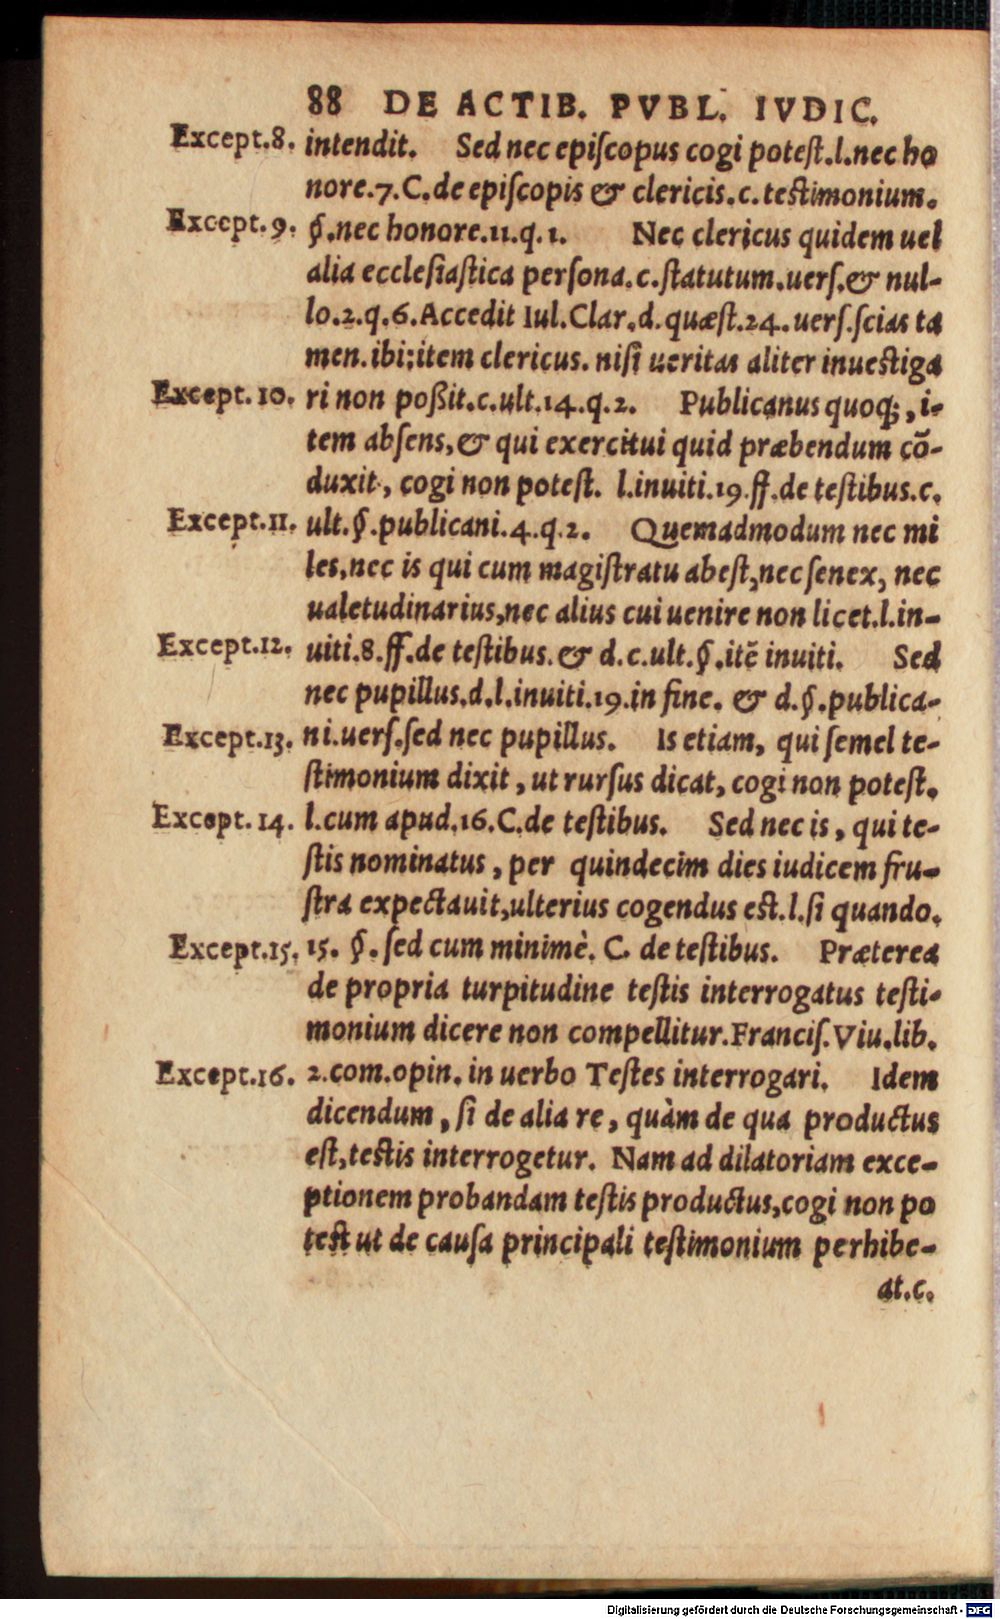 88 DE ACTIB. PVBL. IVDIC.
Except.8. intendit. Sed nec epiſcopus cogi poteſt.l.nec ho
nore.7.C.de epiſcopis & clericis.c.testimonium.
Except.9. §.nec honore.11.q.1. Nec clericus quidem uel
alia eccleſiaſtica perſona.c.ſtatutum.uerſ.& nul-
lo.2.q.6.Accedit Iul.Clar.d.quæſt.24.uerſ.ſcias ta
men.ibi:item clericus.niſi ueritas aliter inuestiga
Except.10. ri non poßit.c.ult.14.q.2. Publicanus quoq;, i-
tem abſens,& qui exercitui quid præbendum cō-
duxit, cogi non poteſt. l.inuiti.19.ff.de teſtibus.c.
Except.11. ult.§.publicani.4.q.2. Quemadmodum nec mi
les,nec is qui cum magiſtratu abeſt,nec ſenex, nec
ualetudinarius,nec alius cui uenire non licet.l.in-
Except.12. uiti.8.ff.de teſtibus.& d.c.ult.§.itē inuiti. Sed
nec pupillus.d.l.inuiti.19.in fine. & d.§.publica-
Except.13. ni.uerſ.ſed nec pupillus. Is etiam, qui ſemel te-
ſtimonium dixit, ut rurſus dicat, cogi non poteſt.
Except.14. l.cum apud.16.C.de teſtibus. Sed nec is, qui te-
ſtis nominatus, per quindecim dies iudicem fru-
ſtra expectauit,ulterius cogendus est.l.ſi quando.
Except.15. 15. §. ſed cum minimè. C. de teſtibus. Præterea
de propria turpitudine teſtis interrogatus teſti-
monium dicere non compellitur.Franciſ.Viu.lib.
Except.16. 2.com.opin.in uerbo Teſtes interrogari. Idem
dicendum, ſi de alia re, quàm de qua productus
eſt,testis interrogetur. Nam ad dilatoriam exce-
ptionem probandam teſtis productus,cogi non po
test ut de cauſa principali teſtimonium perhibe-
at.c.
Digitalisierung gefördert durch die Deutsche Forschungsgemeinschaft - DFG